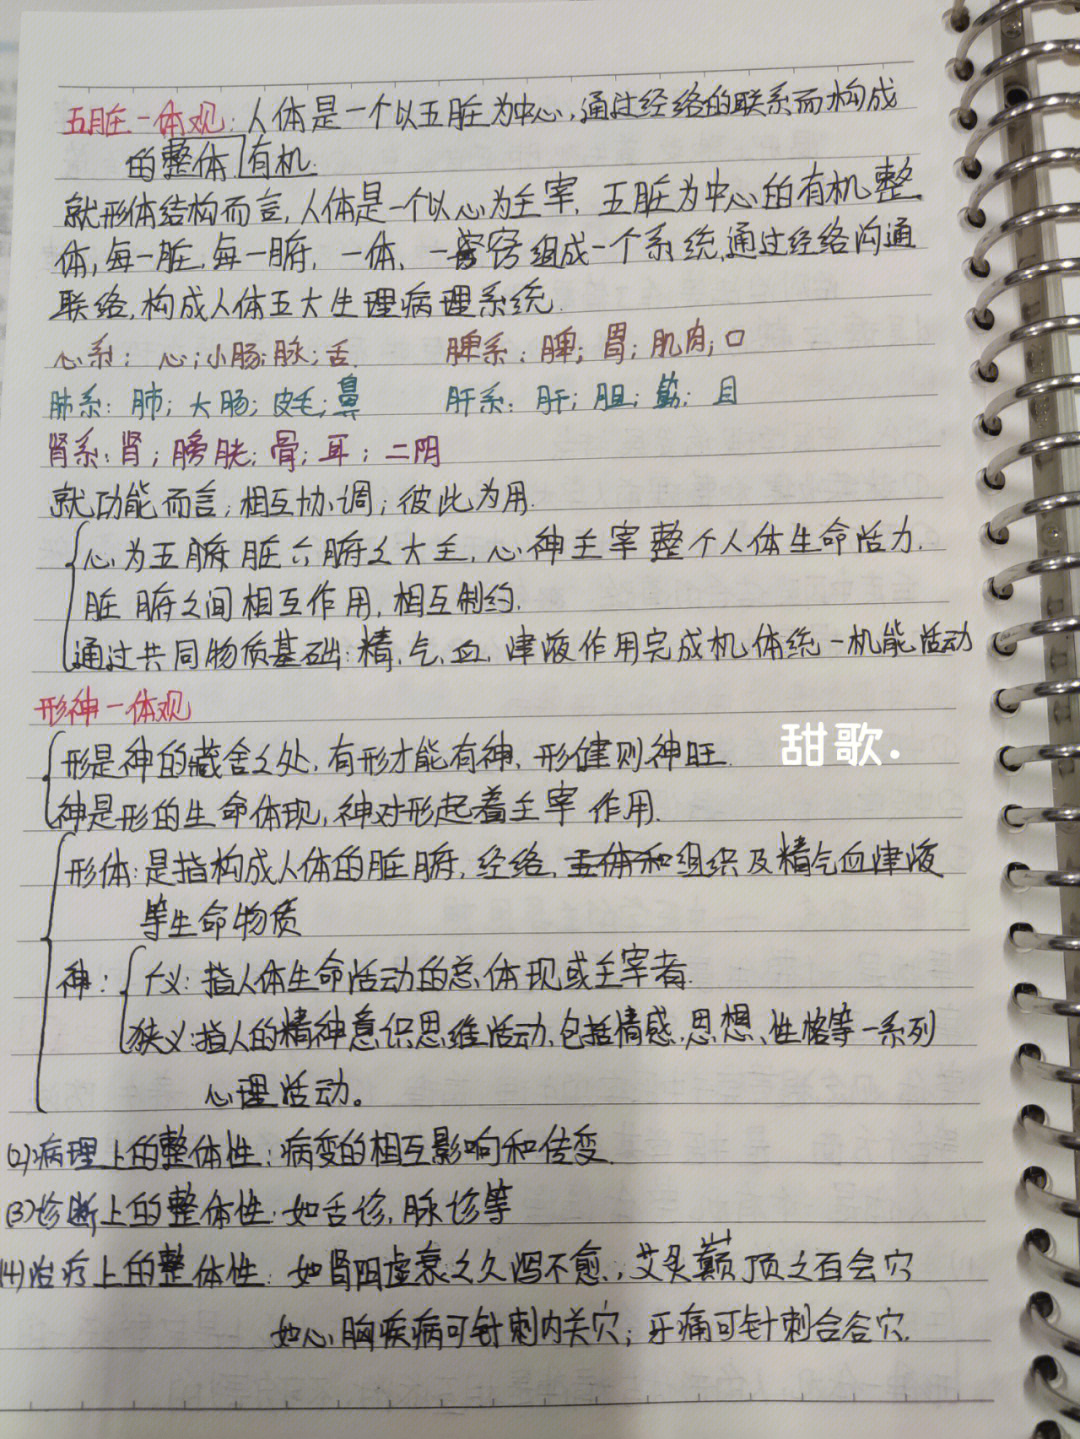 五脏一体观：人体是一个以五脏为中心，通过经络的联系而构成
的整体 有机.
就形体结构而言,人体是一个以心为主宰，五脏为中心的有机整
体,每一脏,每一腑，一体、一窍组成一个系统,通过经络沟通
联络,构成人体五大生理病理系统.
心系：心;小肠;脉;舌. 脾系：脾;胃;肌肉;口
肺系：肺；大肠；皮毛；鼻 肝系：肝；胆；筋；目
肾系:肾；膀胱；骨；耳；二阴
就功能而言;相互协调；彼此为用.
心为五脏六腑之大主，心神主宰整个人体生命活力.
脏腑之间相互作用,相互制约.
通过共同物质基础：精.气.血.津液作用完成机体统一机能活动
形神一体观
形是神的藏舍之处，有形才能有神，形健则神旺.
甜歌.
神是形的生命体现,神对形起着主宰作用.
形体：是指构成人体的脏腑,经络,五体和组织及精气血津液
等生命物质
神：
广义：指人体生命活动的总体现或主宰者.
狭义:指人的精神意识思维活动,包括情感.思想、性格等一系列
心理活动。
(2)病理上的整体性：病变的相互影响和传变.
(3)诊断上的整体性：如舌诊，脉诊等
(4)治疗上的整体性：如肾阳虚衰之久泻不愈，艾灸巅顶之百会穴
如心胸疾病可针刺内关穴；牙痛可针刺合谷穴.